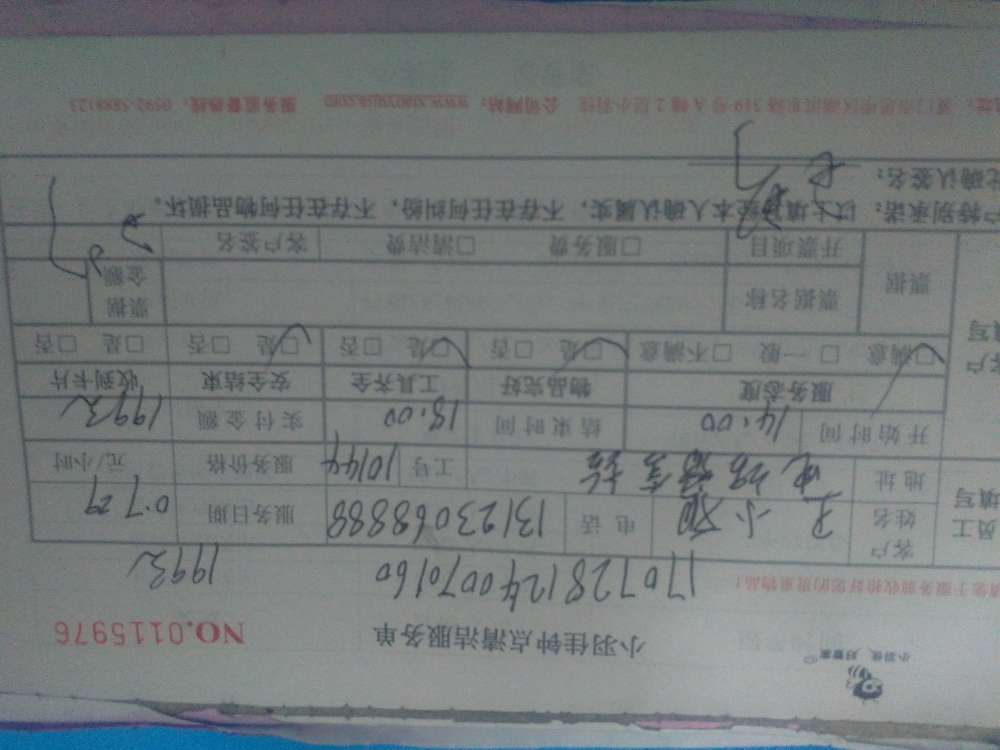 小羽佳 好管家
小羽佳钟点清洁服务单 NO.0115976
请您于服务前收拾好您的贵重物品！
1707281240070160 1992
员工填写 客户姓名 王小姐 电话 13123068888 服务日期 0.7.29
地址 工号 10144 服务价格 元/小时
开始时间 14:00 结束时间 18:00 实付金额 1992
客户填写 服务态度 物品完好 工具齐全 安全结束 收到卡片
□满意 □一般 □不满意 □是 □否 □是 □否 □是 □否 □是 □否
票据 票据名称 票据金额
开票项目 □服务费 □清洁费 客户签名
户特别承诺：以上填写经本人确认属实，不存在任何纠纷，不存在任何物品损坏。
此确认签名：
址：厦门市思明区湖滨南路319号A幢2层小羽佳 公司网站：www.xiaoyujia.com 服务监督热线：0592-5888123